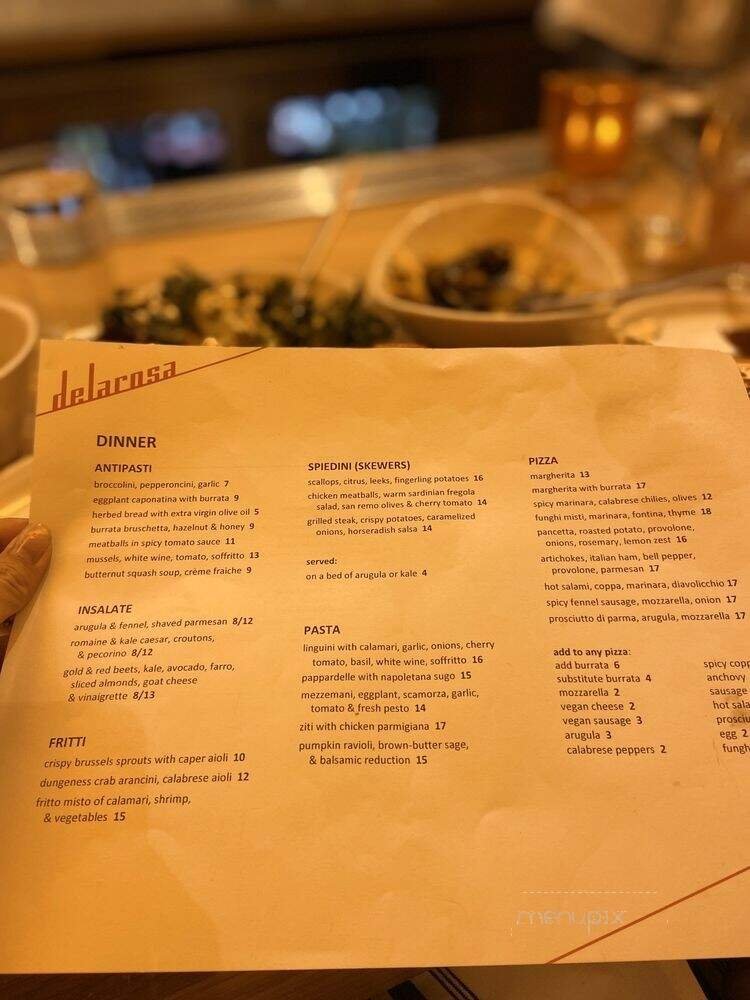 delarosa
DINNER
ANTIPASTI
broccolini, pepperoncini, garlic 7
eggplant caponatina with burrata 9
herbed bread with extra virgin olive oil 5
burrata bruschetta, hazelnut & honey 9
meatballs in spicy tomato sauce 11
mussels, white wine, tomato, soffritto 13
butternut squash soup, crème fraiche 9
INSALATE
arugula & fennel, shaved parmesan 8/12
romaine & kale caesar, croutons,
& pecorino 8/12
gold & red beets, kale, avocado, farro,
sliced almonds, goat cheese
& vinaigrette 8/13
FRITTI
crispy brussels sprouts with caper aioli 10
dungeness crab arancini, calabrese aioli 12
fritto misto of calamari, shrimp,
& vegetables 15
SPIEDINI (SKEWERS)
scallops, citrus, leeks, fingerling potatoes 16
chicken meatballs, warm sardinian fregola
salad, san remo olives & cherry tomato 14
grilled steak, crispy potatoes, caramelized
onions, horseradish salsa 14
served:
on a bed of arugula or kale 4
PASTA
linguini with calamari, garlic, onions, cherry
tomato, basil, white wine, soffritto 16
pappardelle with napoletana sugo 15
mezzemani, eggplant, scamorza, garlic,
tomato & fresh pesto 14
ziti with chicken parmigiana 17
pumpkin ravioli, brown-butter sage,
& balsamic reduction 15
PIZZA
margherita 13
margherita with burrata 17
spicy marinara, calabrese chilies, olives 12
funghi misti, marinara, fontina, thyme 18
pancetta, roasted potato, provolone,
onions, rosemary, lemon zest 16
artichokes, italian ham, bell pepper,
provolone, parmesan 17
hot salami, coppa, marinara, diavolicchio 17
spicy fennel sausage, mozzarella, onion 17
prosciutto di parma, arugula, mozzarella 17
add to any pizza:
add burrata 6
substitute burrata 4
mozzarella 2
vegan cheese 2
vegan sausage 3
arugula 3
calabrese peppers 2
spicy copp
anchovy
sausage
hot sala
prosciu
egg 2
fungh
menupix